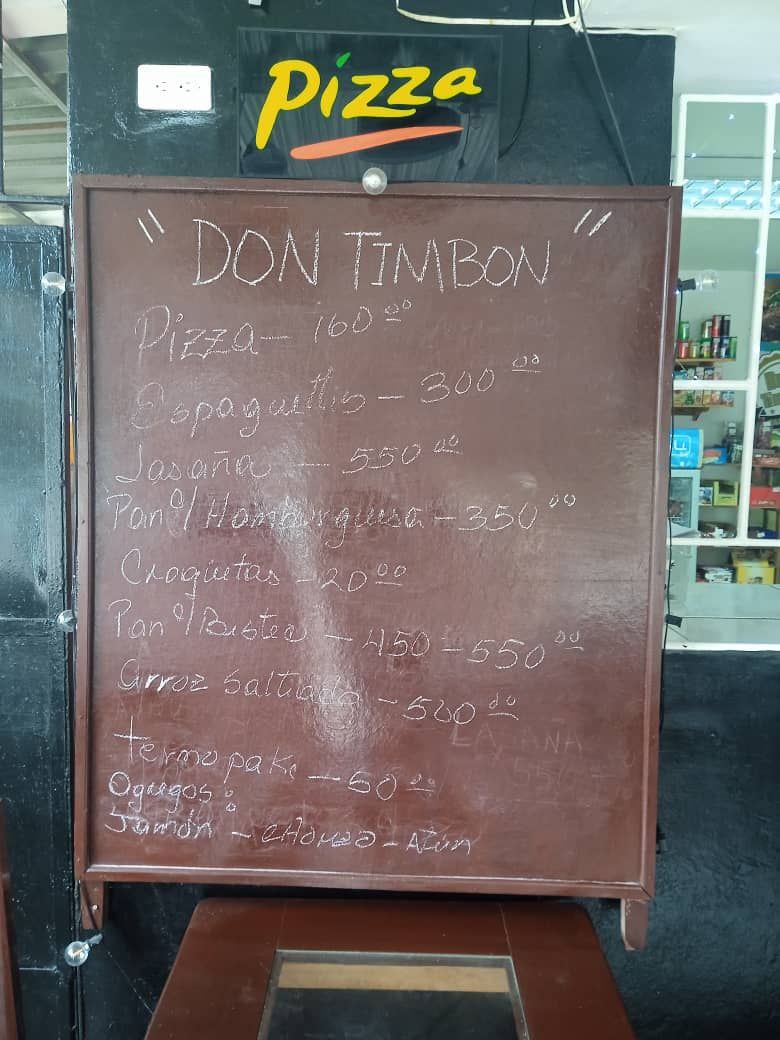 Pizza
"DON TIMBON"
Pizza - 160 00
Espaguettis - 300 00
Lasaña - 550 00
Pan c/ Hamburguesa - 350 00
Croquetas - 20 00
Pan c/ Bistec - 450 - 550 00
Arroz Saltiado - 500 00
termopaki - 50 00
Ogregos:
Jamón - chorizo - Atún